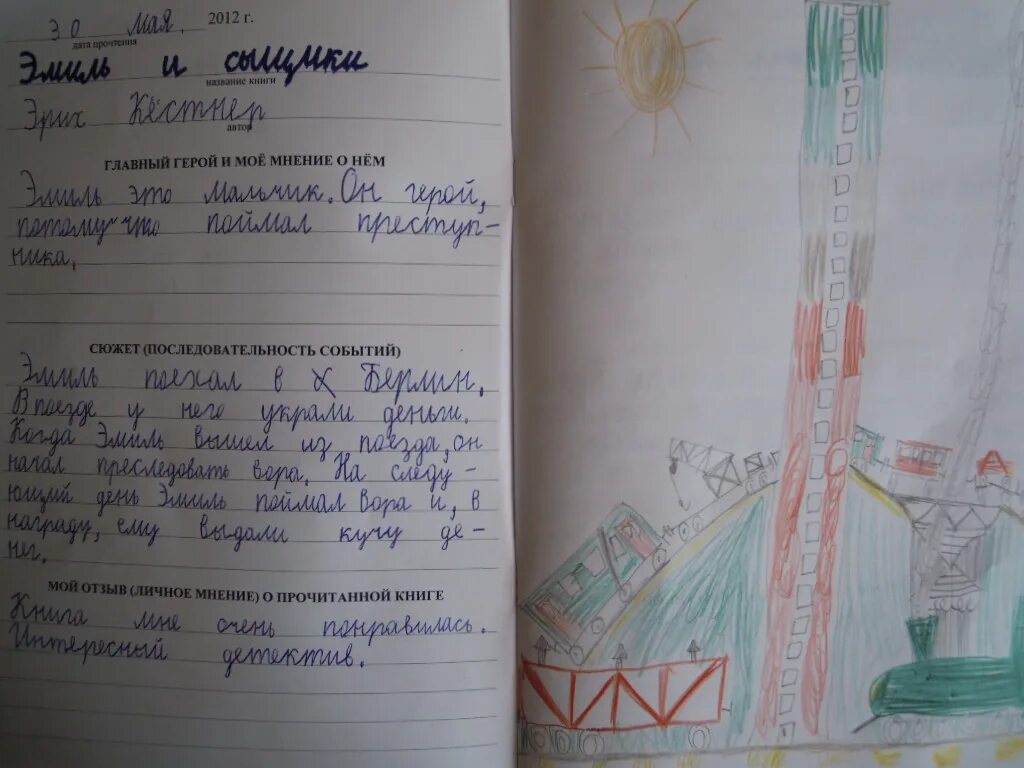 30 мая. 2012 г.
дата прочтения
Эмиль и сыщики
название книги
Эрих Кёстнер
автор
ГЛАВНЫЙ ГЕРОЙ И МОЁ МНЕНИЕ О НЁМ
Эмиль это мальчик. Он герой,
потому что поймал преступ-
ника.
СЮЖЕТ (ПОСЛЕДОВАТЕЛЬНОСТЬ СОБЫТИЙ)
Эмиль поехал в Берлин.
В поезде у него украли деньги.
Когда Эмиль вышел из поезда, он
начал преследовать вора. На следу-
ющий день Эмиль поймал вора и, в
награду, ему выдали кучу де-
нег.
МОЙ ОТЗЫВ (ЛИЧНОЕ МНЕНИЕ) О ПРОЧИТАННОЙ КНИГЕ
Книга мне очень понравилась.
Интересный детектив.